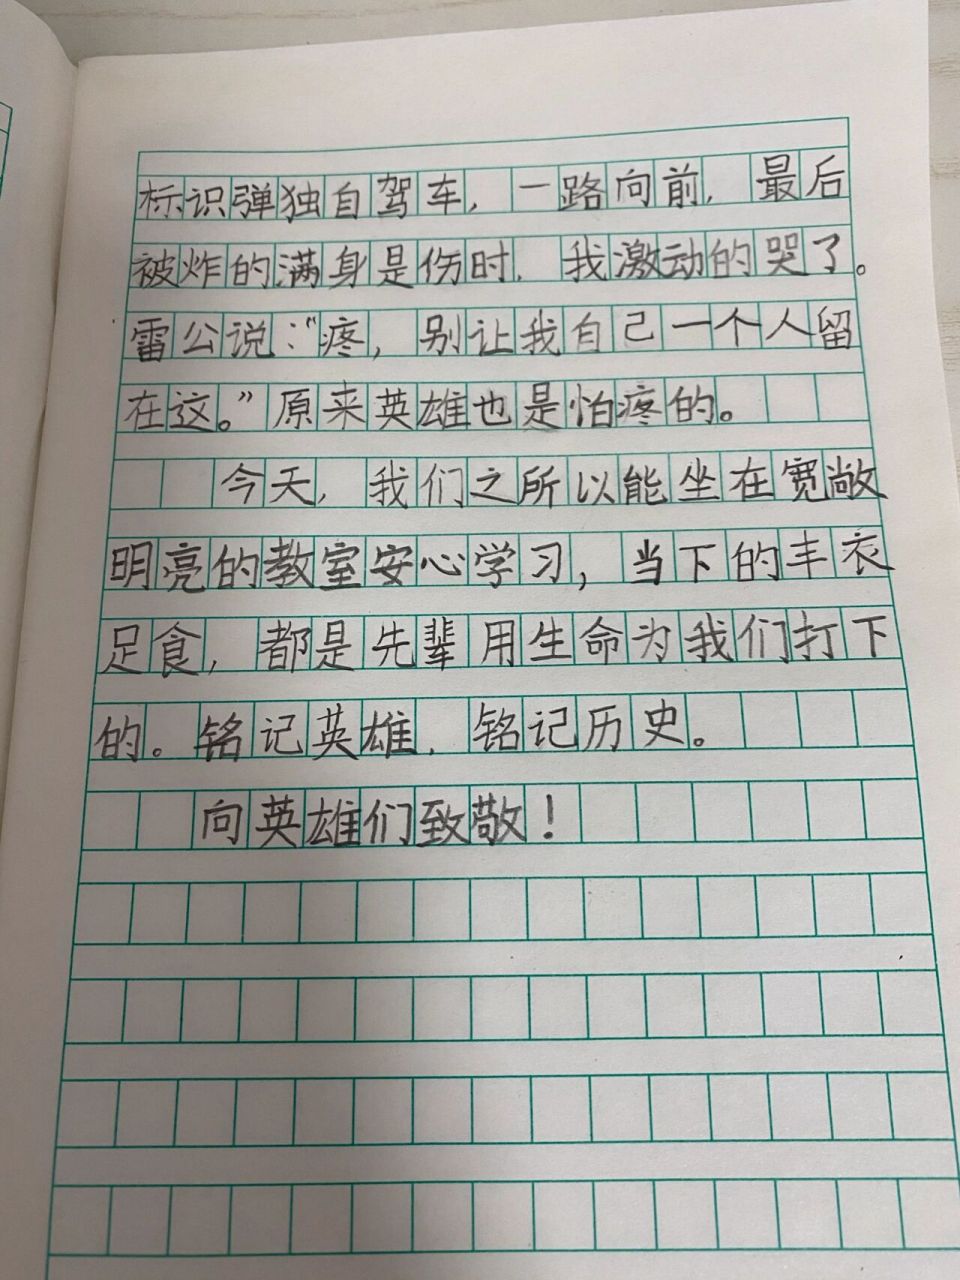 标识弹独自驾车，一路向前，最后
被炸的满身是伤时，我激动的哭了。
雷公说：“疼，别让我自己一个人留
在这。”原来英雄也是怕疼的。
今天，我们之所以能坐在宽敞
明亮的教室安心学习，当下的丰衣
足食，都是先辈用生命为我们打下
的。铭记英雄，铭记历史。
向英雄们致敬！